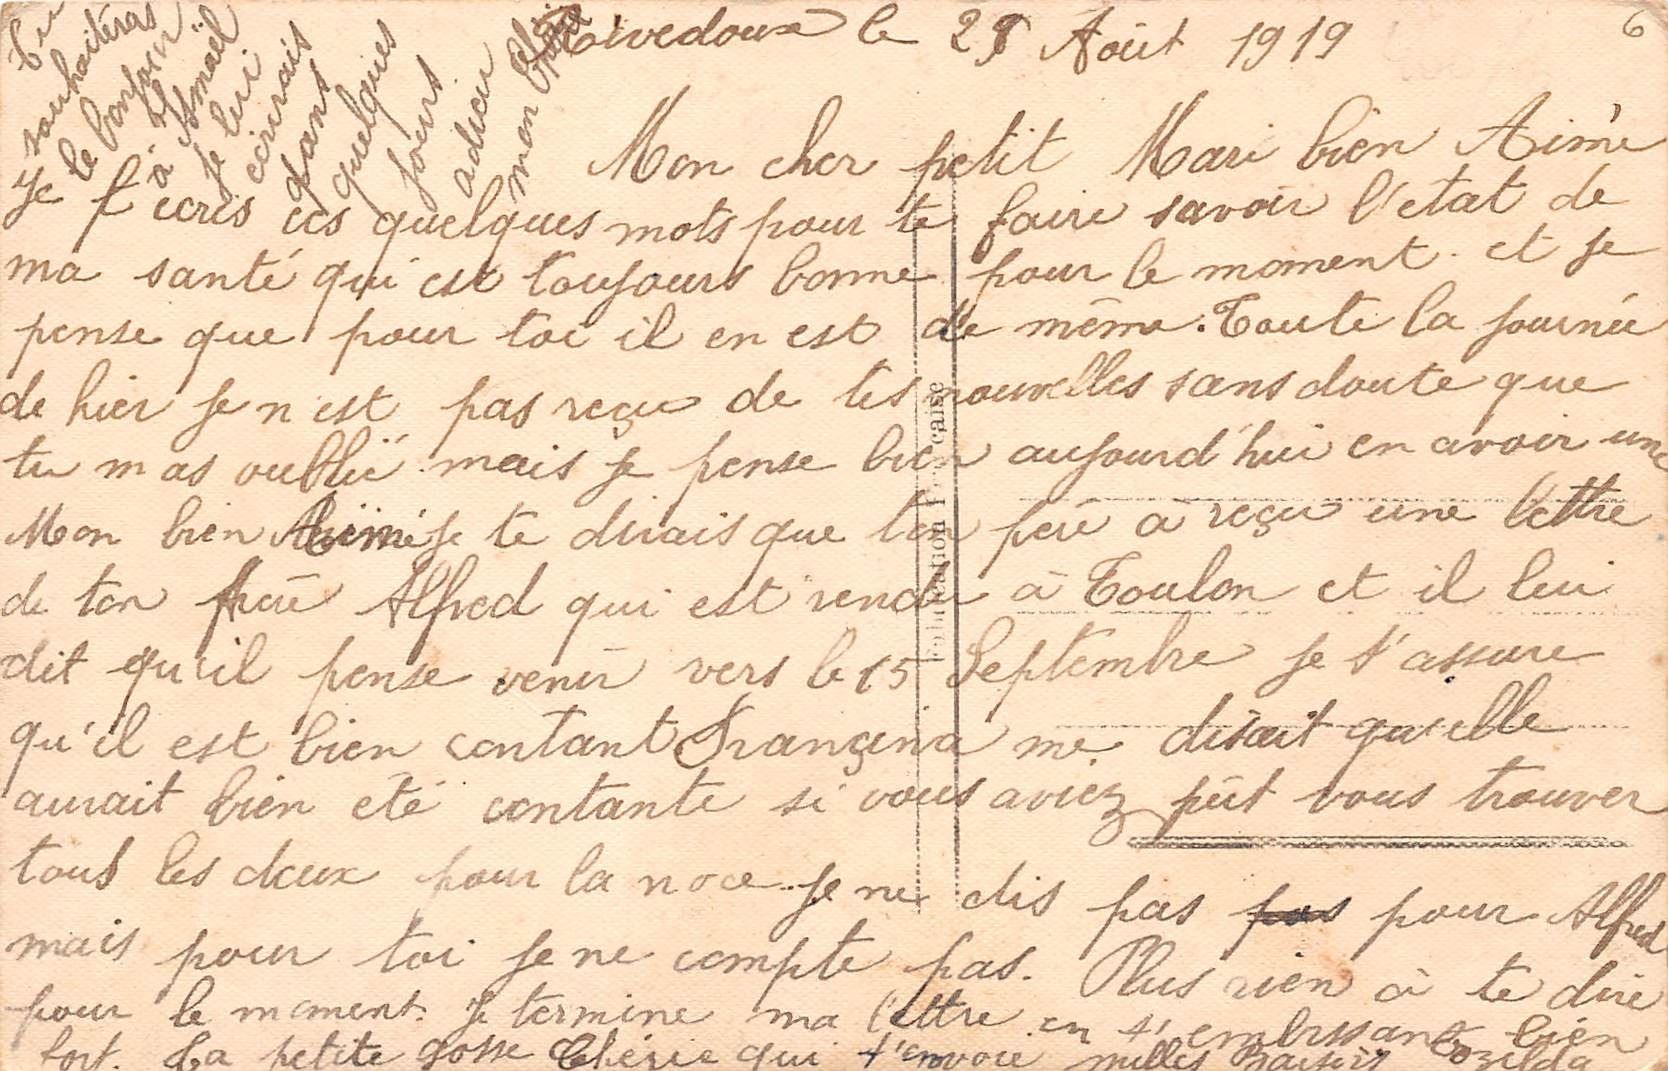 Rivedoux le 28 Août 1919
6
Mon cher petit Mari bien Aimé
Je t'ecris ces quelques mots pour te faire savoir l'etat de
ma santé qui est toujours bonne pour le moment. et je
pense que pour toi il en est de même. Toute la journée
de hier je n'est pas reçu de tes nouvelles sans doute que
tu m as oublié mais je pense bien aujourd'hui en avoir une
Mon bien Aimé je te dirais que ton père a reçu une lettre
de ton frère Alfred qui est rendu à Toulon et il lui
dit qu'il pense venir vers le 15 Septembre je t'assure
qu'il est bien contant Françina me disait qu'elle
aurait bien eté contante si vous aviez pût vous trouver
tous les deux pour la noce. je ne dis pas pas pour Alfred
mais pour toi je ne compte pas. Plus rien à te dire
pour le moment. je termine ma lettre en t'embrssant bien
fort. La petite gosse Chérie qui t'envoie milles Baisers
Tu
souhaiteras
le bonjour
à Ismaël
je lui
ecirrais
dans
quelques
jours
adieu
mon